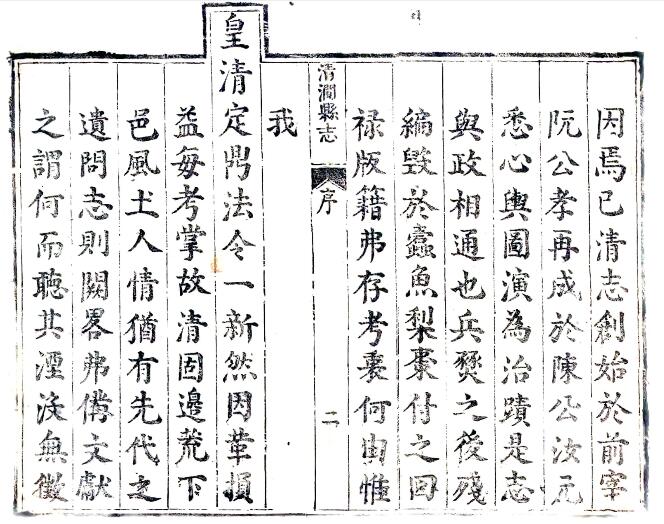 因焉已清志創始於前宰
阮公孝再成於陳公汝元
悉心輿圖演為治蹟是志
與政相通也兵燹之後殘
編毀於蠹魚梨棗付之回
祿版籍弗存考衷何由惟
清澗縣志
序
二
我
皇清定鼎法令一新然因革損
益每考掌故清固邊荒下
邑風土人情猶有先代之
遺問志則闕畧弗備文獻
之謂何而聽其湮沒無徵